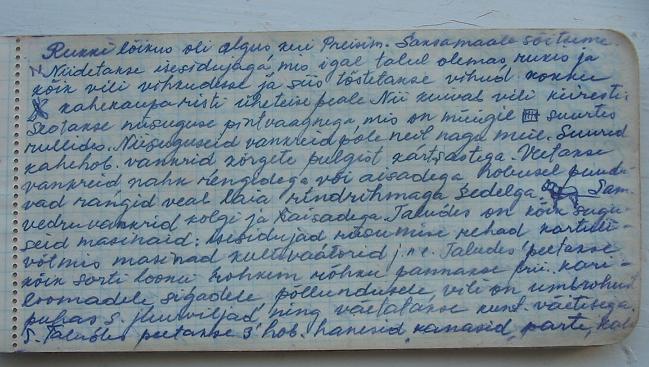 Rukki lõikus oli algus kui Preisim. Saksamaale sõitsime.
Niidetakse isesidujaga, mis igal talul olemas rukis ja
kõik vili vihkudesse ja siis tõstetakse vihud kokku
kahekaupa risti üksteise peale Nii kuivab vili kiiresti.
Seotakse niisuguse mis on müügil suurtes
rullides. Niisuguseid vankreid põle neil nagu meil. Suured
kahehob. vankrid kõrgete pulgist Veetakse
vankreid nahk rengidega või aisadega hobusel puudu-
vad rangid veal laia rindrihmaga sedelga
vedruvankrid kolgi ja Taludes on kõik sugu
seid masinaid: isesidujad niitsumise rehad kartuli-
võtmis masinad kultivaatorid j.n.e. Taludes peetakse
kõik sorti loomi rohkem rõhku pannakse kari-
loomadele, sigadele põllundusele vili on umbrohust
puhas s. ning väetatakse kunst. väetisega.
S. Taludes peetakse 3 hob. hanesid, kanasid, parte,